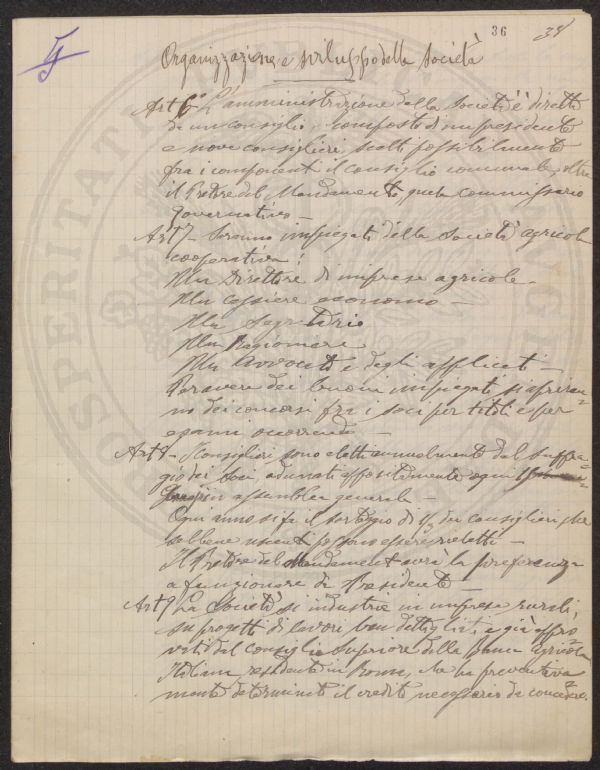 36
Organizzazione e sviluppo della Società
Art 6° L'amministrazione della Società è diretta
da un consiglio, composto di un presidente
e nove consiglieri scelti possibilmente
fra i componenti il consiglio comunale, oltre
il Pretore del Mandamento, quale commissario
governativo —
Art 7 — Saranno impiegati della Società agricola
cooperativa:
Un Direttore di imprese agricole —
Un cassiere economo —
Un Segretario
Un Ragioniere
Un Avvocato e degli applicati —
Per avere dei buoni impiegati si apriran=
no dei concorsi fra i soci per titoli e per
esami occorrendo —
Art 8 — I Consiglieri sono eletti annualmente dal suffra=
gio dei Soci, adunati appositamente ogni
in assemblea generale —
Ogni anno si fa il sorteggio di 1/3 dei consiglieri che
sebbene uscenti possono essere rieletti —
Il Pretore del Mandamento avrà la preferenza
a funzionare da Presidente —
Art 9 La Società si industria in imprese rurali,
su progetti di lavori ben dettagliati, e già appro
vati dal consiglio superiore della Banca agricola
Italiana, residente in Roma, che ha preventiva=
mente determinato il credito necessario da concedere.
PROSPERITATI